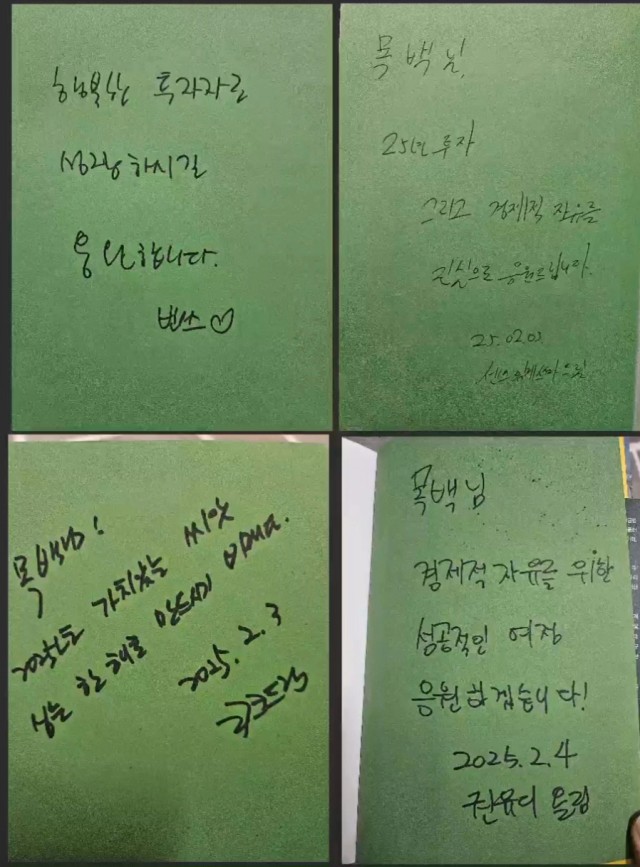 행복한 투자자로
성장하시길
응원합니다.
뽀쓰♡
목백님,
25년 투자
그리고 경제적 자유를
진심으로 응원드립니다.
25.02.03
드림
목백님!
2025년도 가치있는 씨앗
심는 한 해로 만드시기 바래요.
2025. 2. 3
목백님
경제적 자유를 위한
성공적인 여정
응원하겠습니다!
2025. 2. 4
올림